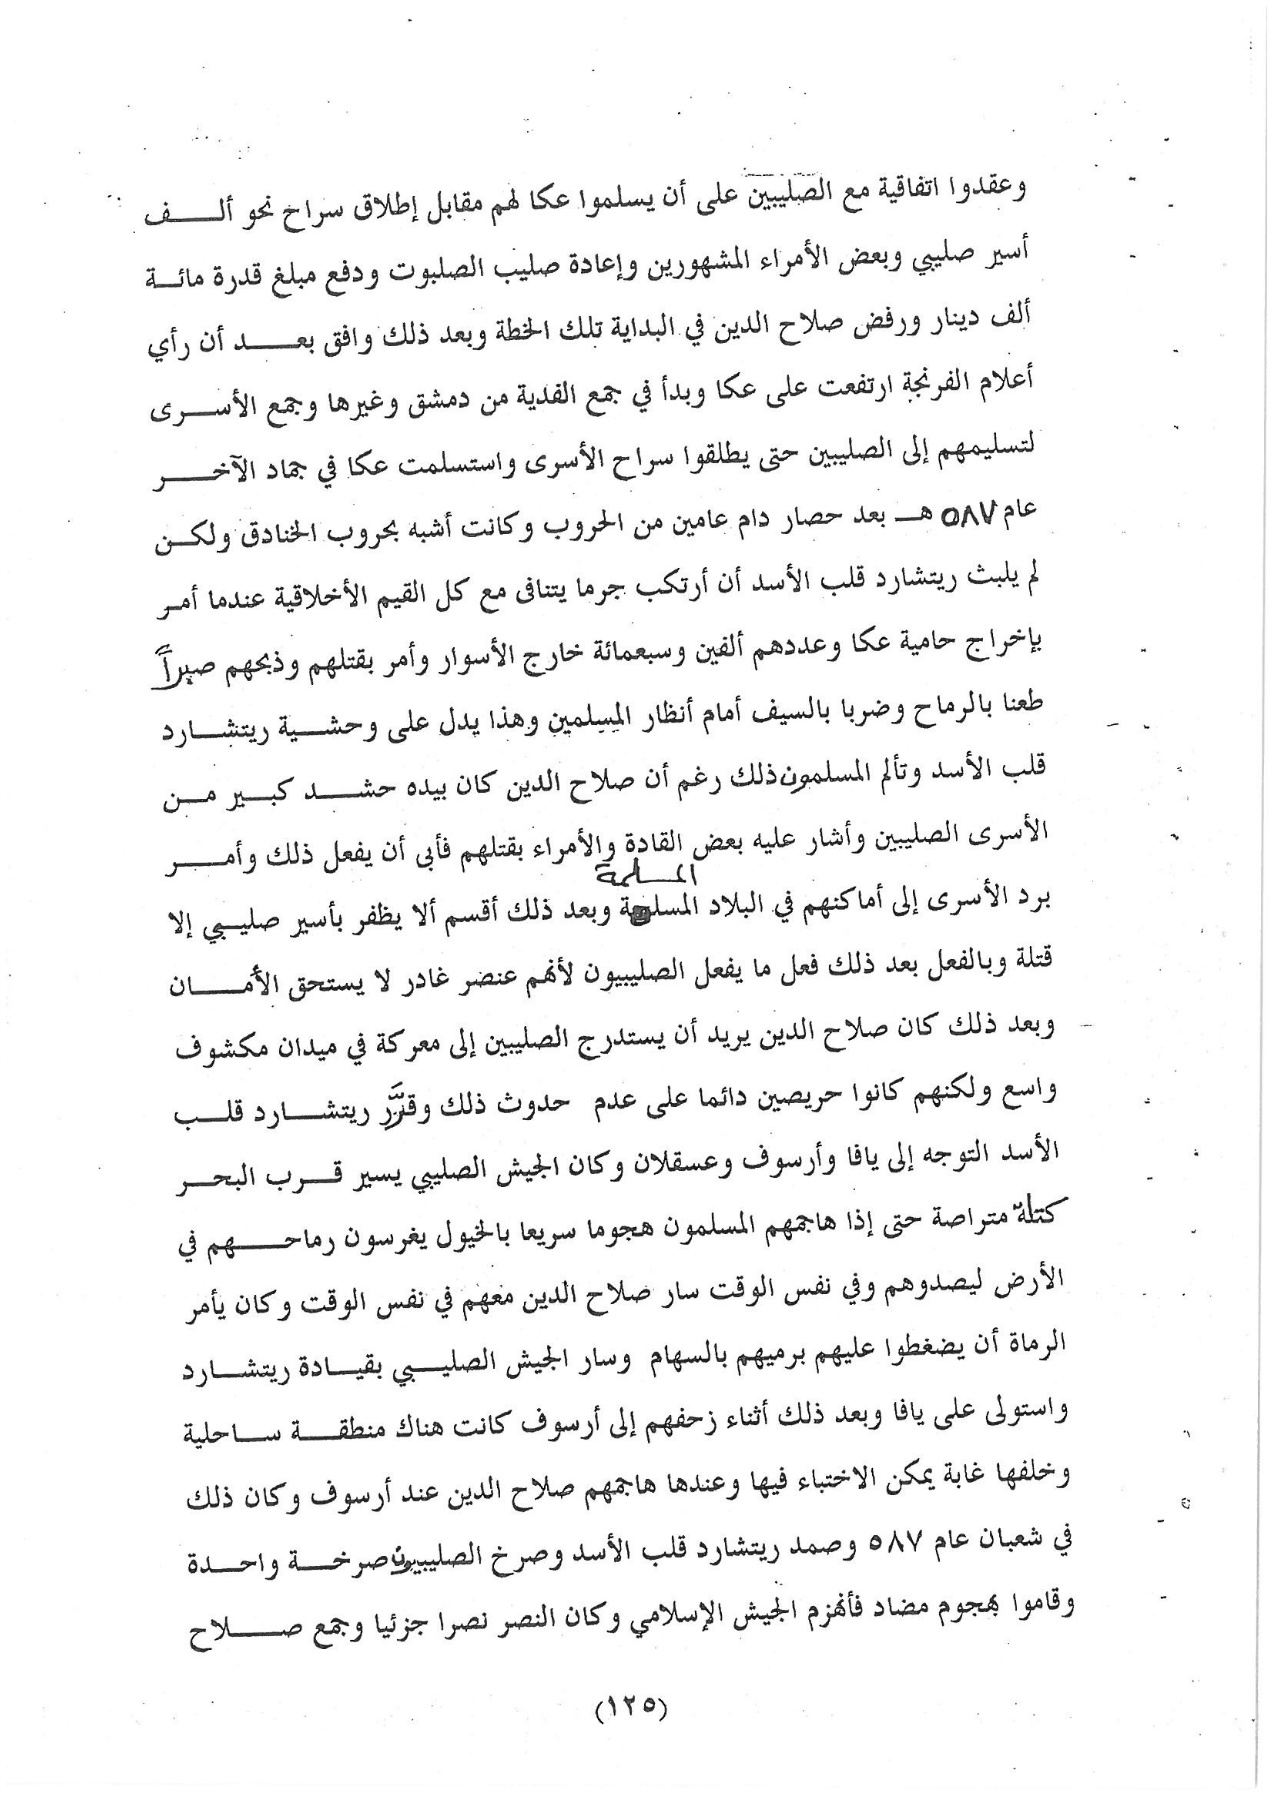 وعقدوا اتفاقية مع الصليبين على أن يسلموا عكا لهم مقابل إطلاق سراح نحو ألف
أسير صليبي وبعض الأمراء المشهورين وإعادة صليب الصلبوت ودفع مبلغ قدرة مائة
ألف دينار ورفض صلاح الدين في البداية تلك الخطة وبعد ذلك وافق بعد أن رأي
أعلام الفرنجة ارتفعت على عكا وبدأ في جمع الفدية من دمشق وغيرها وجمع الأسرى
لتسليمهم إلى الصليبين حتى يطلقوا سراح الأسرى واستسلمت عكا في جماد الآخر
عام ٥٨٧ هـ بعد حصار دام عامين من الحروب وكانت أشبه بحروب الخنادق ولكن
لم يلبث ريتشارد قلب الأسد أن أرتكب جرما يتنافى مع كل القيم الأخلاقية عندما أمر
بإخراج حامية عكا وعددهم ألفين وسبعمائة خارج الأسوار وأمر بقتلهم وذبحهم صبراً
طعنا بالرماح وضربا بالسيف أمام أنظار المسلمين وهذا يدل على وحشية ريتشارد
قلب الأسد وتألم المسلمون ذلك رغم أن صلاح الدين كان بيده حشد كبير من
الأسرى الصليبين وأشار عليه بعض القادة والأمراء بقتلهم فأبى أن يفعل ذلك وأمر
المسلمة
برد الأسرى إلى أماكنهم في البلاد المسلمة وبعد ذلك أقسم ألا يظفر بأسير صليبي إلا
قتلة وبالفعل بعد ذلك فعل ما يفعل الصليبيون لأنهم عنصر غادر لا يستحق الأمان
وبعد ذلك كان صلاح الدين يريد أن يستدرج الصليبين إلى معركة في ميدان مكشوف
واسع ولكنهم كانوا حريصين دائما على عدم حدوث ذلك وقرَّر ريتشارد قلب
الأسد التوجه إلى يافا وأرسوف وعسقلان وكان الجيش الصليبي يسير قرب البحر
كتلة متراصة حتى إذا هاجمهم المسلمون هجوما سريعا بالخيول يغرسون رماحهم في
الأرض ليصدوهم وفي نفس الوقت سار صلاح الدين معهم في نفس الوقت وكان يأمر
الرماة أن يضغطوا عليهم برميهم بالسهام وسار الجيش الصليبي بقيادة ريتشارد
واستولى على يافا وبعد ذلك أثناء زحفهم إلى أرسوف كانت هناك منطقة ساحلية
وخلفها غابة يمكن الاختباء فيها وعندها هاجمهم صلاح الدين عند أرسوف وكان ذلك
في شعبان عام ٥٨٧ وصمد ريتشارد قلب الأسد وصرخ الصليبيون صرخة واحدة
وقاموا بهجوم مضاد فأنهزم الجيش الإسلامي وكان النصر نصرا جزئيا وجمع صلاح
(١٢٥)